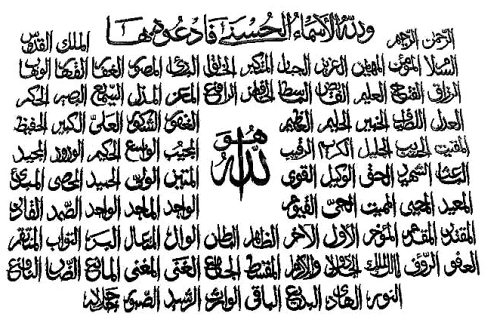 الرحمن الرحيم ولله الأسماء الحسنى فادعوه بها الملك القدوس
السلام المؤمن المهيمن العزيز الجبار المتكبر الخالق البارئ المصور الغفار القهار الوهاب
الرزاق الفتاح العليم القابض الباسط الخافض الرافع المعز المذل السميع البصير الحكم
العدل اللطيف الخبير الحليم العظيم الغفور الشكور العلي الكبير الحفيظ
هو الله
المقيت الحسيب الجليل الكريم الرقيب المجيب الواسع الحكيم الودود المجيد
الباعث الشهيد الحق الوكيل القوي المتين الولي الحميد المحصي المبدئ
المعيد المحيي المميت الحي القيوم الواجد الماجد الواحد الصمد القادر
المقتدر المقدم المؤخر الأول الآخر الظاهر الباطن الوالي المتعال البر التواب المنتقم
العفو الرؤف مالك الملك ذو الجلال والإكرام المقسط الجامع الغني المغني المانع الضار النافع
النور الهادي البديع الباقي الوارث الرشيد الصبور جل جلاله